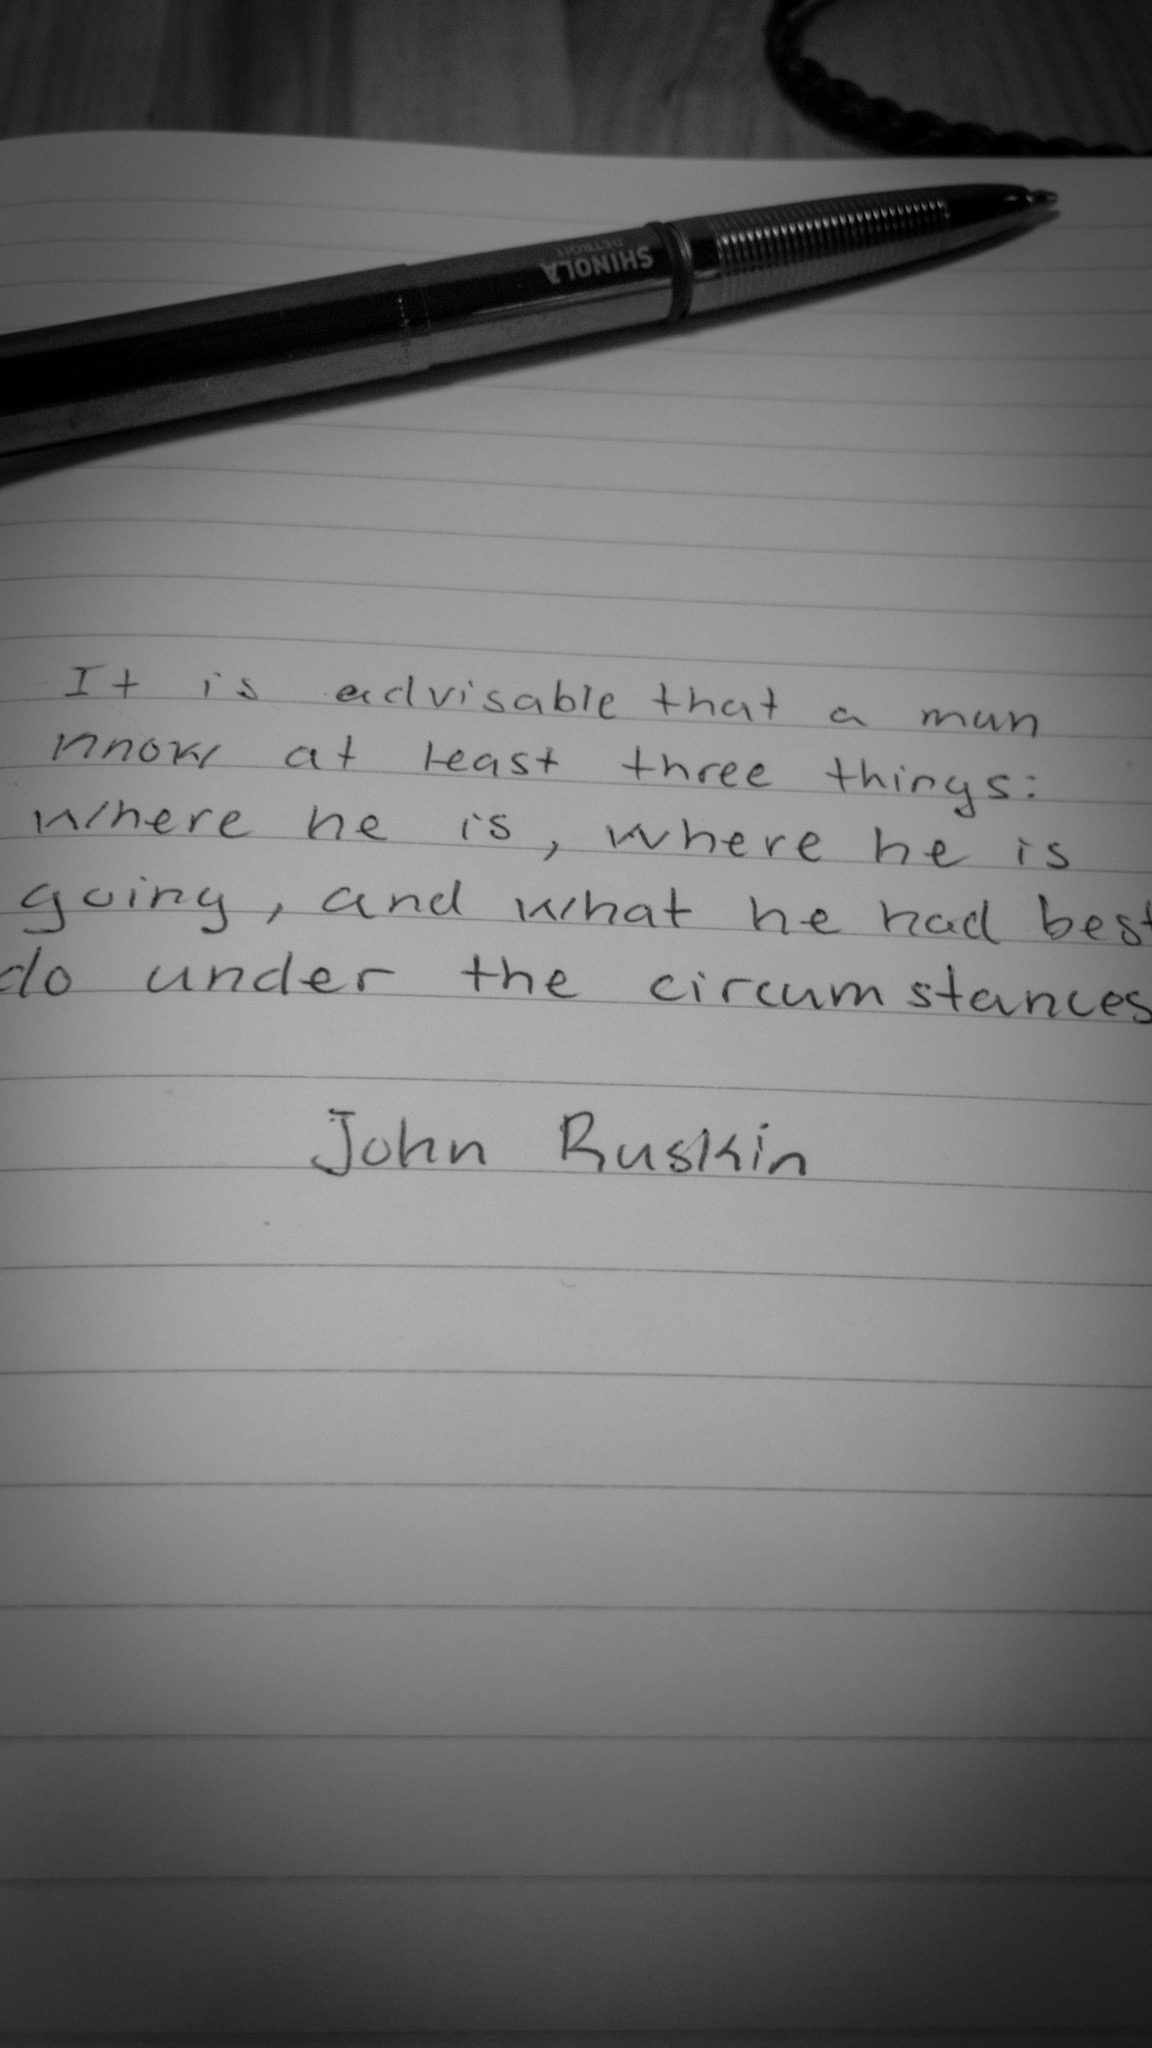 SHINOLA
DETROIT
It is advisable that a man
know at least three things:
Where he is, where he is
going, and what he had best
do under the circumstances
John Ruskin